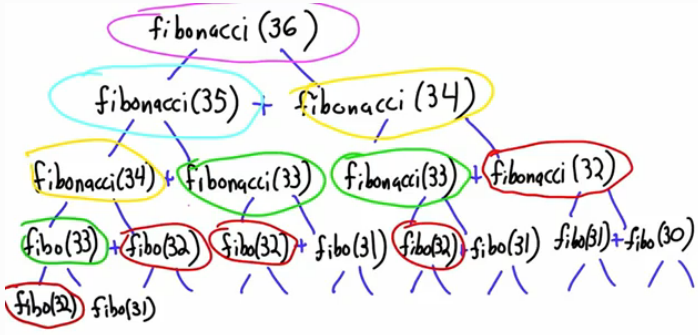 fibonacci (36)
fibonacci(35) + fibonacci (34)
fibonacci(34) + fibonacci(33) fibonacci(33) + fibonacci (32)
fibo(33) + fibo(32) fibo(32) + fibo(31) fibo(32) + fibo(31) fibo(31) + fibo(30)
fibo(32) fibo(31)